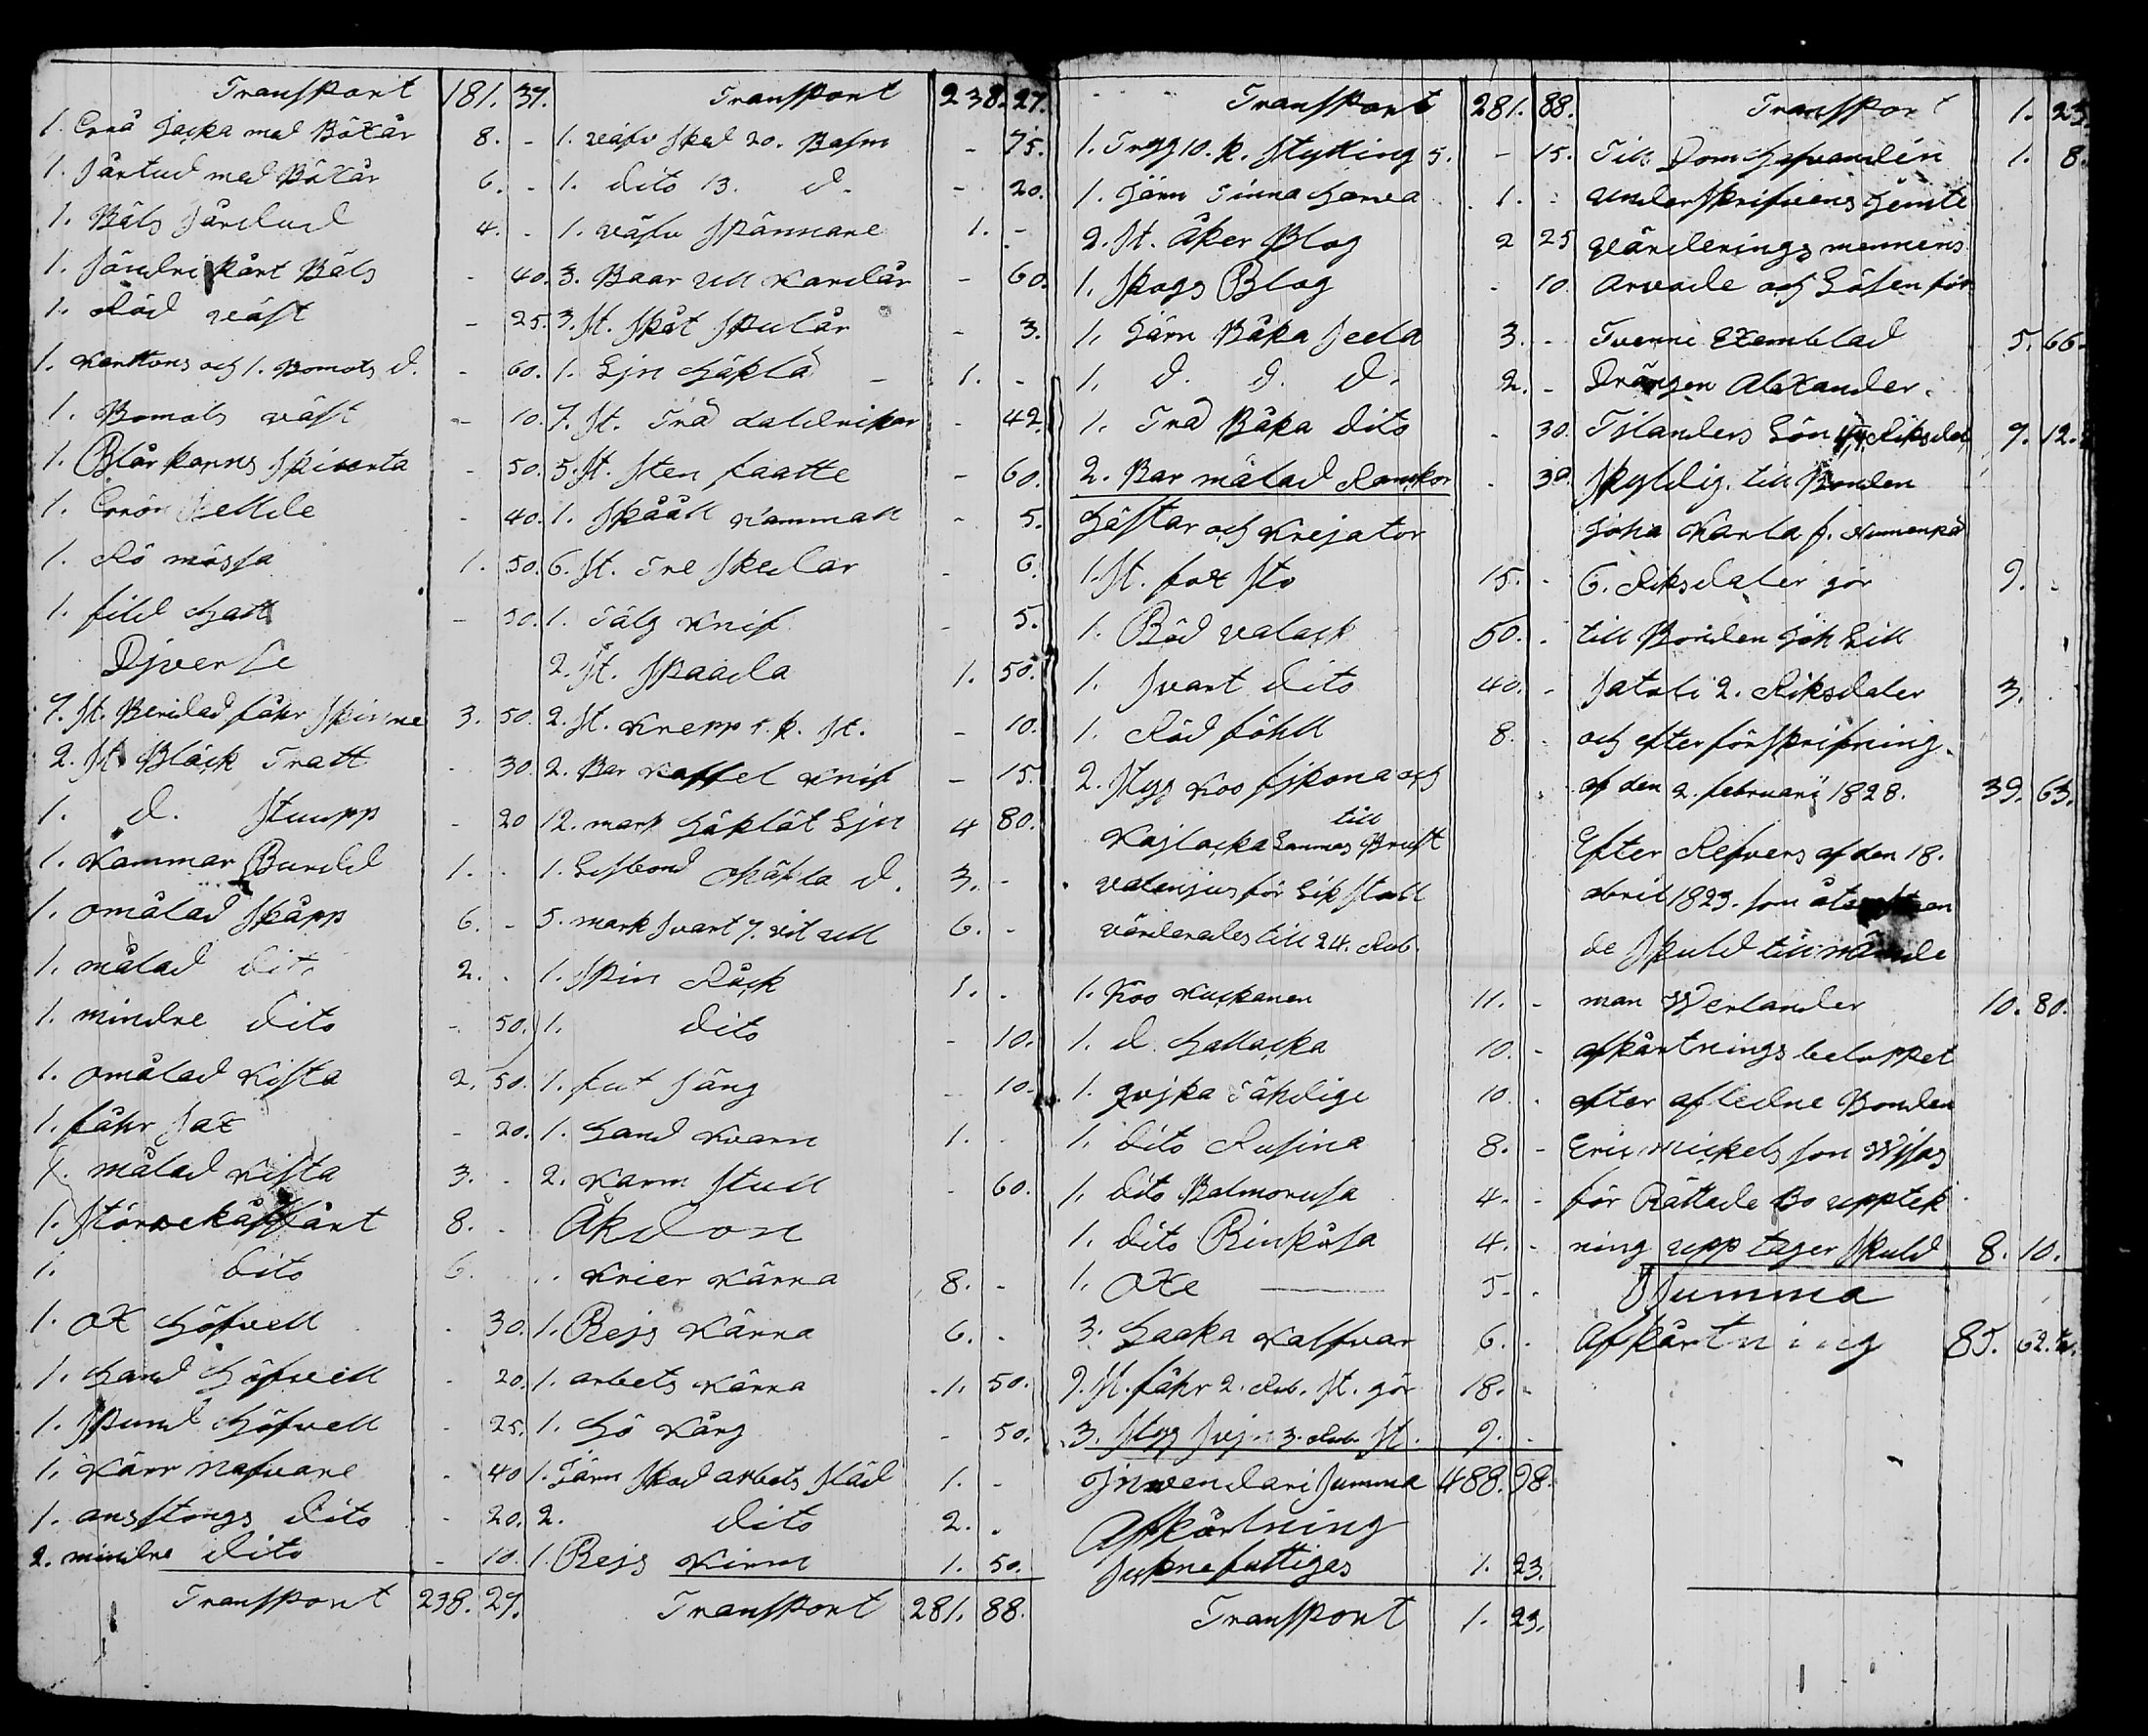 Transsport 181. 37.
1. Grå Jacka med Båxår 8. -
1. Sårtud med Båxår 6. -
1. Bäls Sårdud 4. -
1. Söndri skårt Bäls - 40.
1. Röd väst - 25.
1. Karttons och 1. Bomols d. - 60.
1. Bomols väst - 10.
1. Blår kanns skiorta - 50.
1. Grön - 40.
1. Rö mössa 1. 50.
1. fild Hatt - 50.
Djverse
7. st. Beridad fåhr skinne 3. 50.
2. st. Bläck Tratt - 30.
1. d. Stuupp - 20
1. Kammar Burdd 1. -
1. omålad skåpp 6. -
1. målad dito 2. -
1. mindre dito - 50.
1. omålad Kista 2. 50.
1. fåhr sax - 20.
1. målad Kista 3. -
1. större 8. -
1. dito 6.
1. ox Höfvell - 30.
1. Hand Höfvell - 20.
1. Spund Höfvell - 25.
1. Kärr Nafvare - 40
1. ansstongs dito - 20.
2. mindre dito - 10.
Transsport 238. 27.
Transsport 238. 27.
1. väfv sked 20. Basm - 75.
1. dito 13. d. - 20.
1. väfv spännare 1. -
3. Baar ull Kardår - 60.
3. st. skåt spulår - 3.
1. Ljn Häkla 1. -
7. st. Trä daldrikar - 42.
5. st. sten faatte - 60.
1. skååll Kammall - 5.
6. st. Tre skedar - 6.
1. Tälg Knif - 5.
2. st. spaada 1. 50.
2. st. Knepp 5. k. st. - 10.
2. Bar Kaffel Knif - 15.
12. mark Häklåt Ljn 4 80.
1. Lisbond Ohäkla d. 3. -
5. mark svart 7. vit ull 6. -
1. spin Råck 1. -
1. dito - 10.
1. fut säng - 10.
1. Hand Kvarn 1. -
2. Karm stull - 60.
Åkdon
1. Krier Kärra 8. -
1. Rejs Kärra 6. -
1. arbets Kärra 1. 50.
1. Hö Kärg - 50.
1. Järn skod arbets släd 1. -
2. dito 2. -
1. Rejs Kirra 1. 50.
Transsport 281. 88.
Transsport 281. 88.
1. Trygg 10. k. stytting 5. - 15.
1. Järn Tinna Harva 1. -
2. st. åker Blog 2 25
1. skogs Blog - 10
1. Järn Båka seela 3. -
1. d. d. d. 2. -
1. Trä Båka dito - 30.
2. Bar målad Ranskor - 30
Hästar och Krejator
1. st. fox sto 15. -
1. Röd valack 50. -
1. svart dito 40. -
1. Röd fåhll 8. -
2. styg Koo fjkona och
till
Kajlacka Lannas Brust
valnjus för Lik stall
värderades till 24. Rub.
1. Koo Kuckanen 11. -
1. d. Hallacka 10. -
1. qvjka Tähdige 10. -
1. dito Rusina 8. -
1. dito Balmorusa 4. -
1. dito Rinkusa 4. -
1. Oxe 5. -
3. Haaka Kalfvar 6. -
9. st. fåhr 2. Rub. st. gör 18. -
3. styg svjn 3. Rub. st. 9. -
Jnwendari summa 488. 98.
Afkårtning
sokne fattigas 1. 23.
Transsport 1. 23.
Transsport 1. 23.
Till Domhafvandén 1. 8.
Underskrifvens Hemte
värderings mennens
arvode och Lösen för
Tvenne Exemblad 5. 66.
Drängen Alexander
Tilanders Lön Riksdal 9. 12.
skyldig till Bonden
Joha Karla f.
6. Riksdaler gör 9. -
till Bonden Joh Lill
satali 2. Riksdaler 3.
och efter förskrifning
af den 2. februari 1828. 39. 63.
Efter Refvers af den 18.
abril 1823. som
de skuld till
man Werlander 10. 80.
afkårtnings beloppet
efter afledne Bonden
Eric Mickels son Wisas
för Råttade Bo upptek
ning upp tager skuld 8. 10.
Summa
Afkårtning 85. 62.